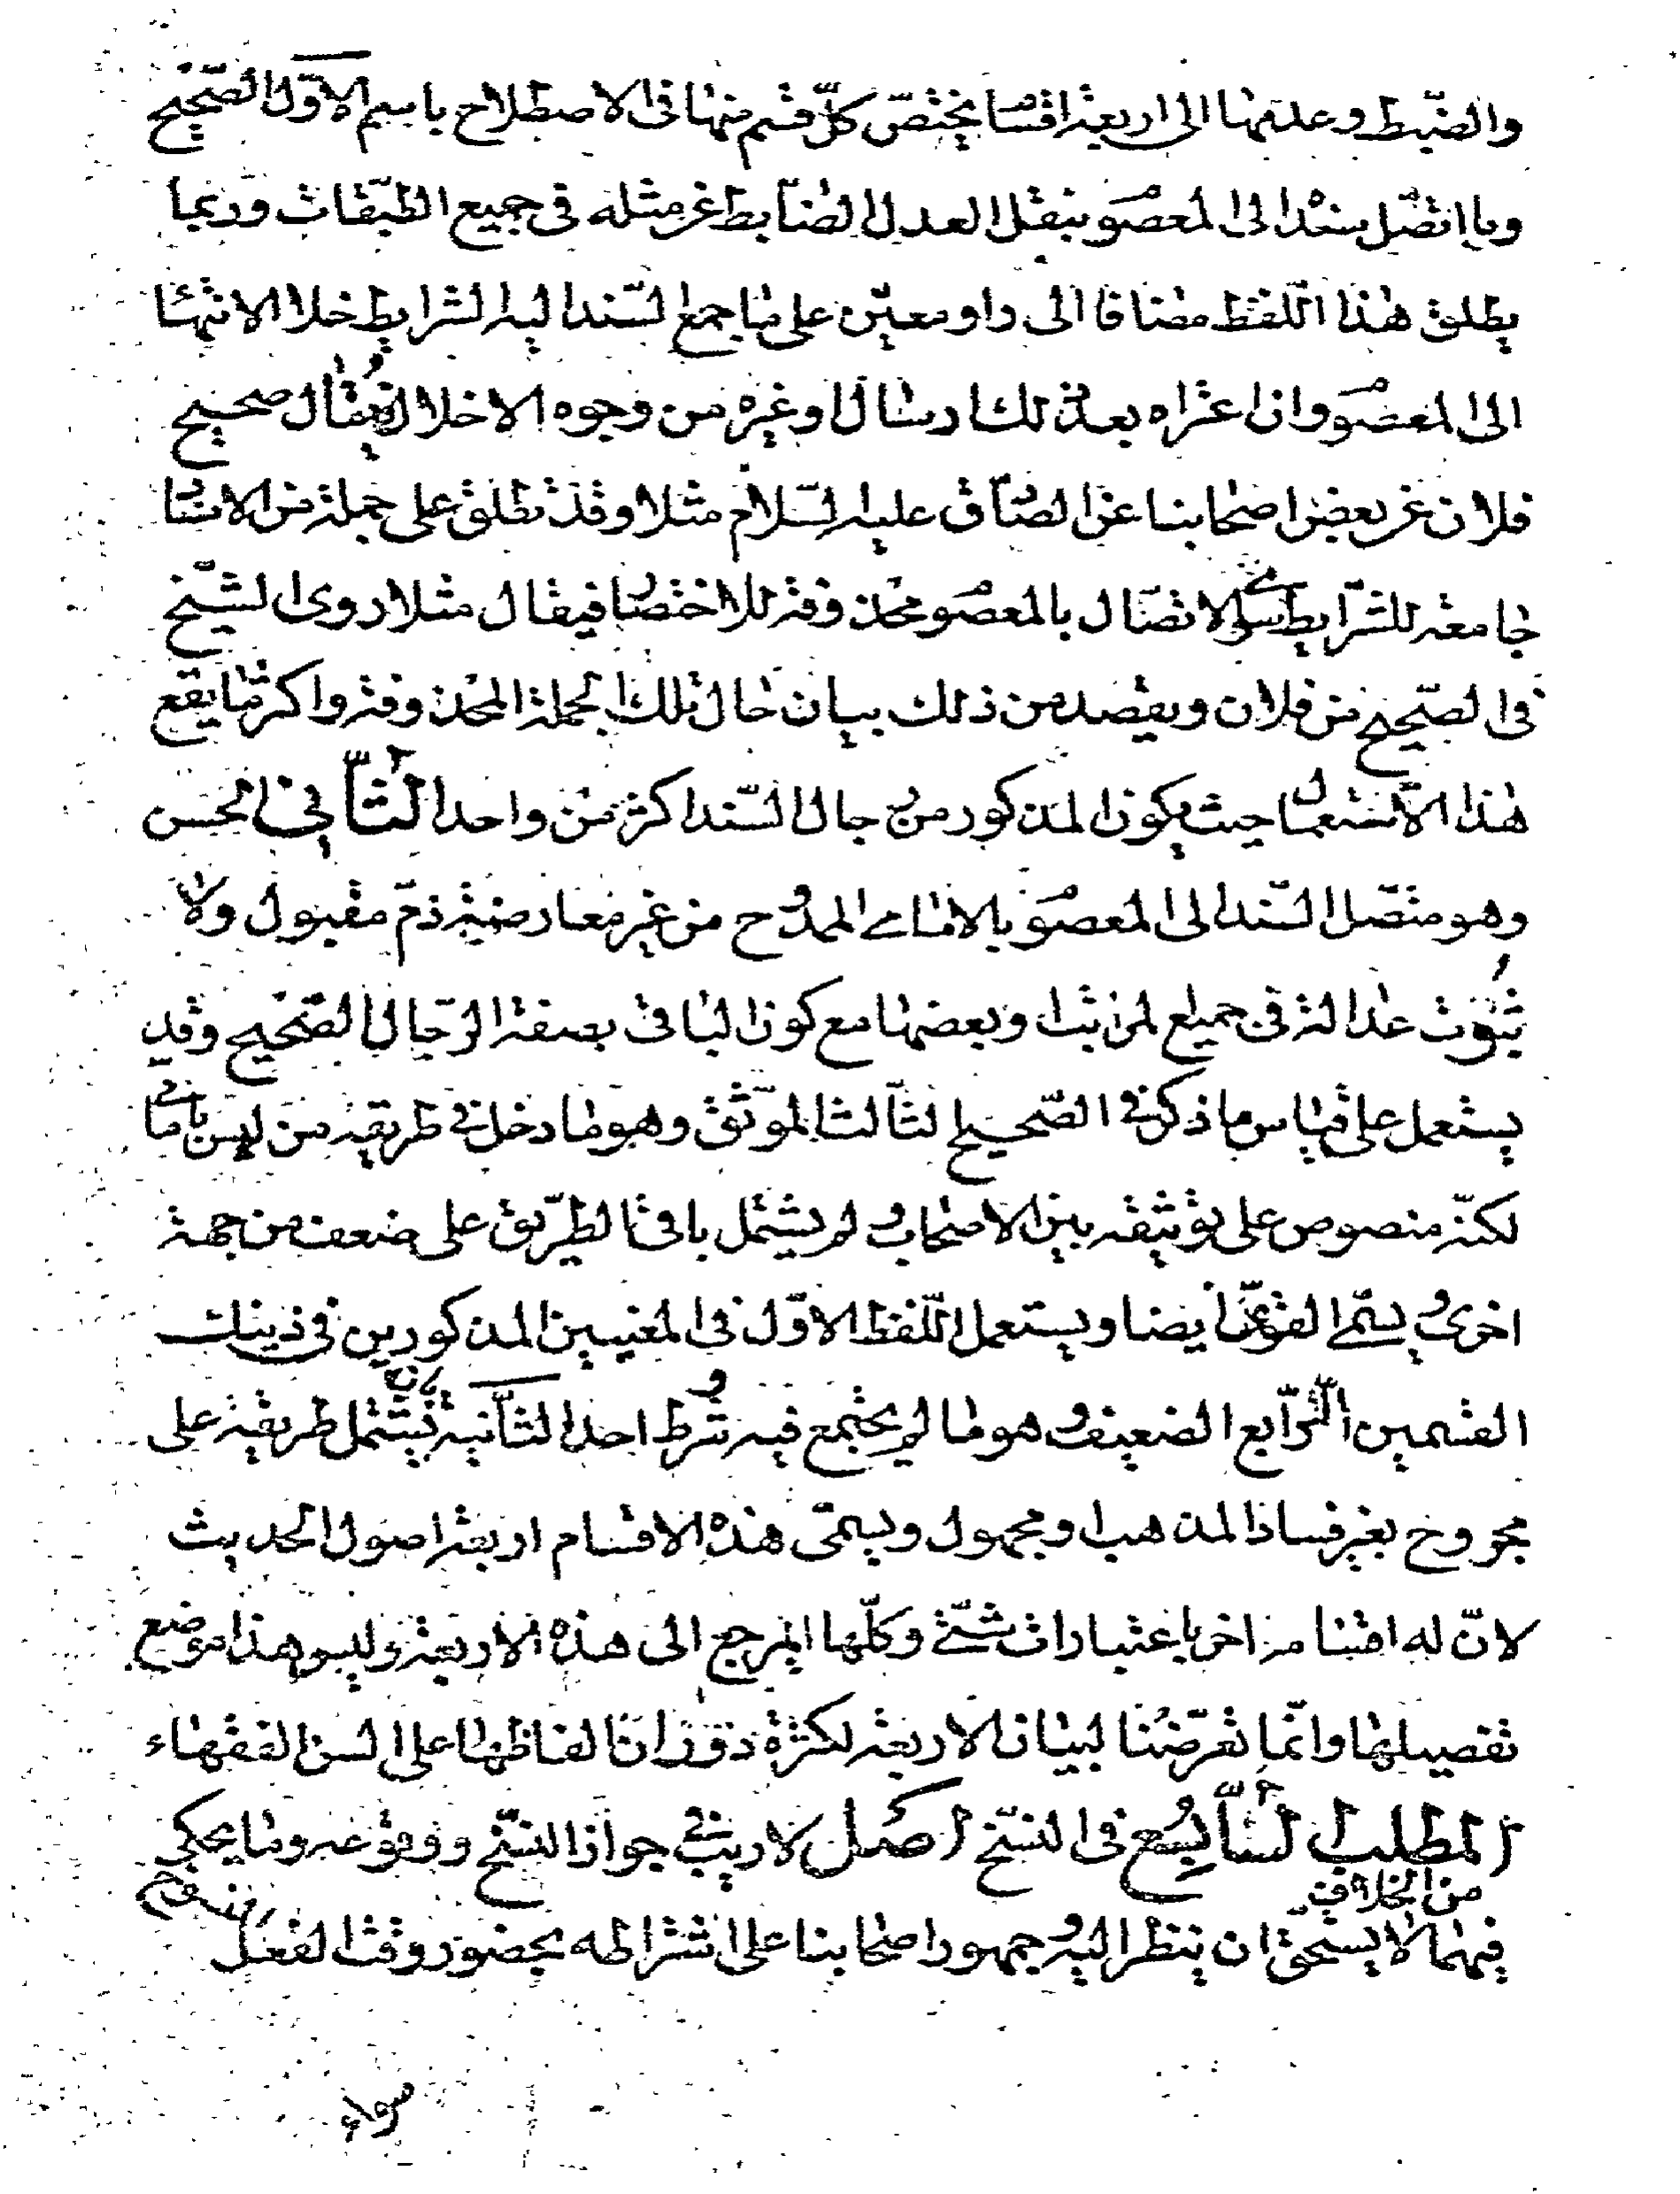 والضبط وعدمها الى اربعة اقسا يختص كلّ قسم منها فى الاصطلاح باسم الاوّل الصّحيح
وما اتصّل سنده الى المعصو بنقل العدل الضابط عن مثله فى جميع الطبّقات وربما
يطلق هذا اللّفظ مضافا الى راو معيّن على ما جمع السّند اليه الشرايط خلا الانتها
الى المعصو وان اعتراه بعد ذلك ارسال او غيره من وجوه الاختلال فيقال صحيح
فلان عن بعض اصحابنا عن الصّاق عليه السّلام مثلا وقد تطلق على جملة من الاسنا
جامعة للشّرايط سوى الاتصّال بالمعصو محذوفة للاختصا فيقال مثلا روى الشّيخ
فى الصّحيح عن فلان ويقصد من ذلك بيان حال تلك الجملة المحذوفة واكثر ما يقع
هذا الاستعمال حيث يكون المذكور من رجال السّند اكثر من واحد الثّانى الحسن
وهو متصّل السّند الى المعصو بالامامى الممدوح من غير معارضة ذمّ مقبول ولا
ثبوت عدالة فى جميع المراتب او بعضها مع كون الباقى بصفة الرّجال الصّحيح وقد
يستعمل على قياس ما ذكر فى الصّحيح الثّالث الموثّق وهو ما دخل فى طريقه من ليس بامامى
لكنّه منصوص على توثيقه بين الاصحاب و لم يشتمل باقى الطرّيق على ضعف من جهة
اخرى و يسمّى القوىّ ايضا ويستعمل اللّفظ الاوّل فى المعنيين المذكورين فى ذينك
القسمين الرّابع الضعيف و هو ما لم يجتمع فيه شروط احد الثلّثة بان يشتمل طريقه على
مجروح بغير فساد المذهب او مجهول ويسمّى هذه الاقسام اربعة اصول الحديث
لانّ له اقساما اخر باعتبارات شتّى وكلّها المرجع الى هذه الاربعة وليس هذا موضع
تفصيلها وانّما تعرّضنا لبيان الاربعة لكثرة دوران الفاظها على السن الفقهاء
المطلب التّاسع فى النسّخ اصل لا ريب فى جواز النسّخ ووقوعه وما يحكى
فيهما من الخلاف لا يستحق ان ينظر اليه و جمهور اصحابنا على اشتراطه بحضور وقت الفعل المنسوخ
سواء